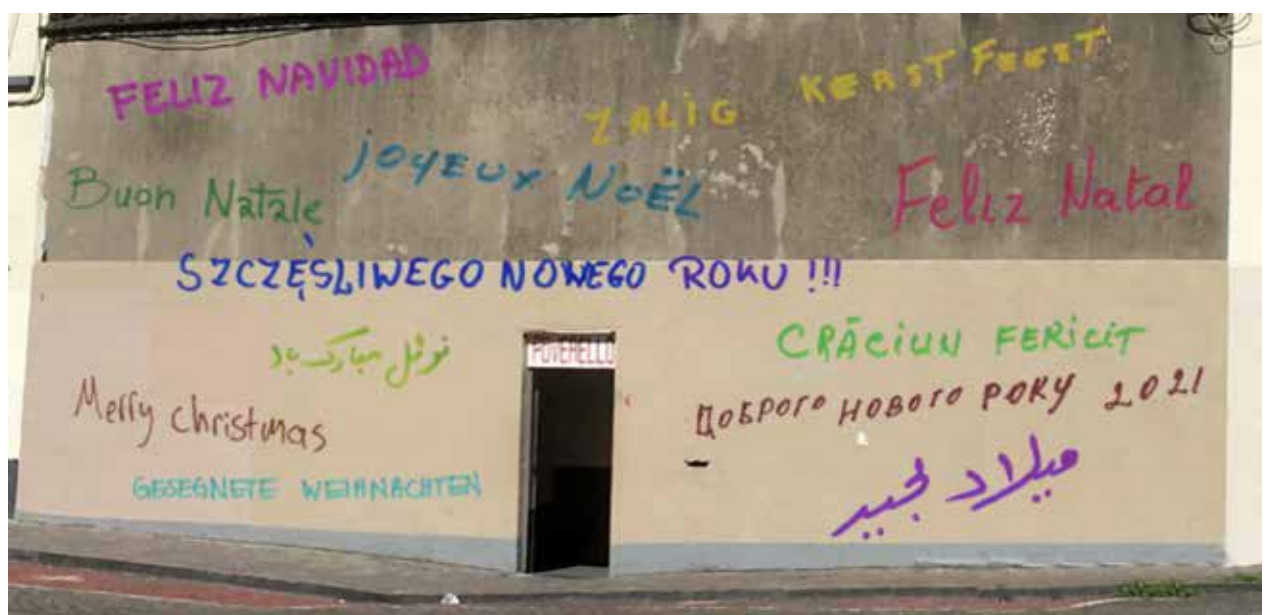 FELIZ NAVIDAD
ZALIG KERSTFEEST
JOYEUX NOËL
Buon Natale
Feliz Natal
SZCZĘŚLIWEGO NOWEGO ROKU !!!
نوئل مبارک باد
POVERELLO
CRĂCIUN FERICIT
Merry christmas
ДОБРОГО НОВОГО РОКУ 2021
GESEGNETE WEIHNACHTEN
ميلاد مجيد